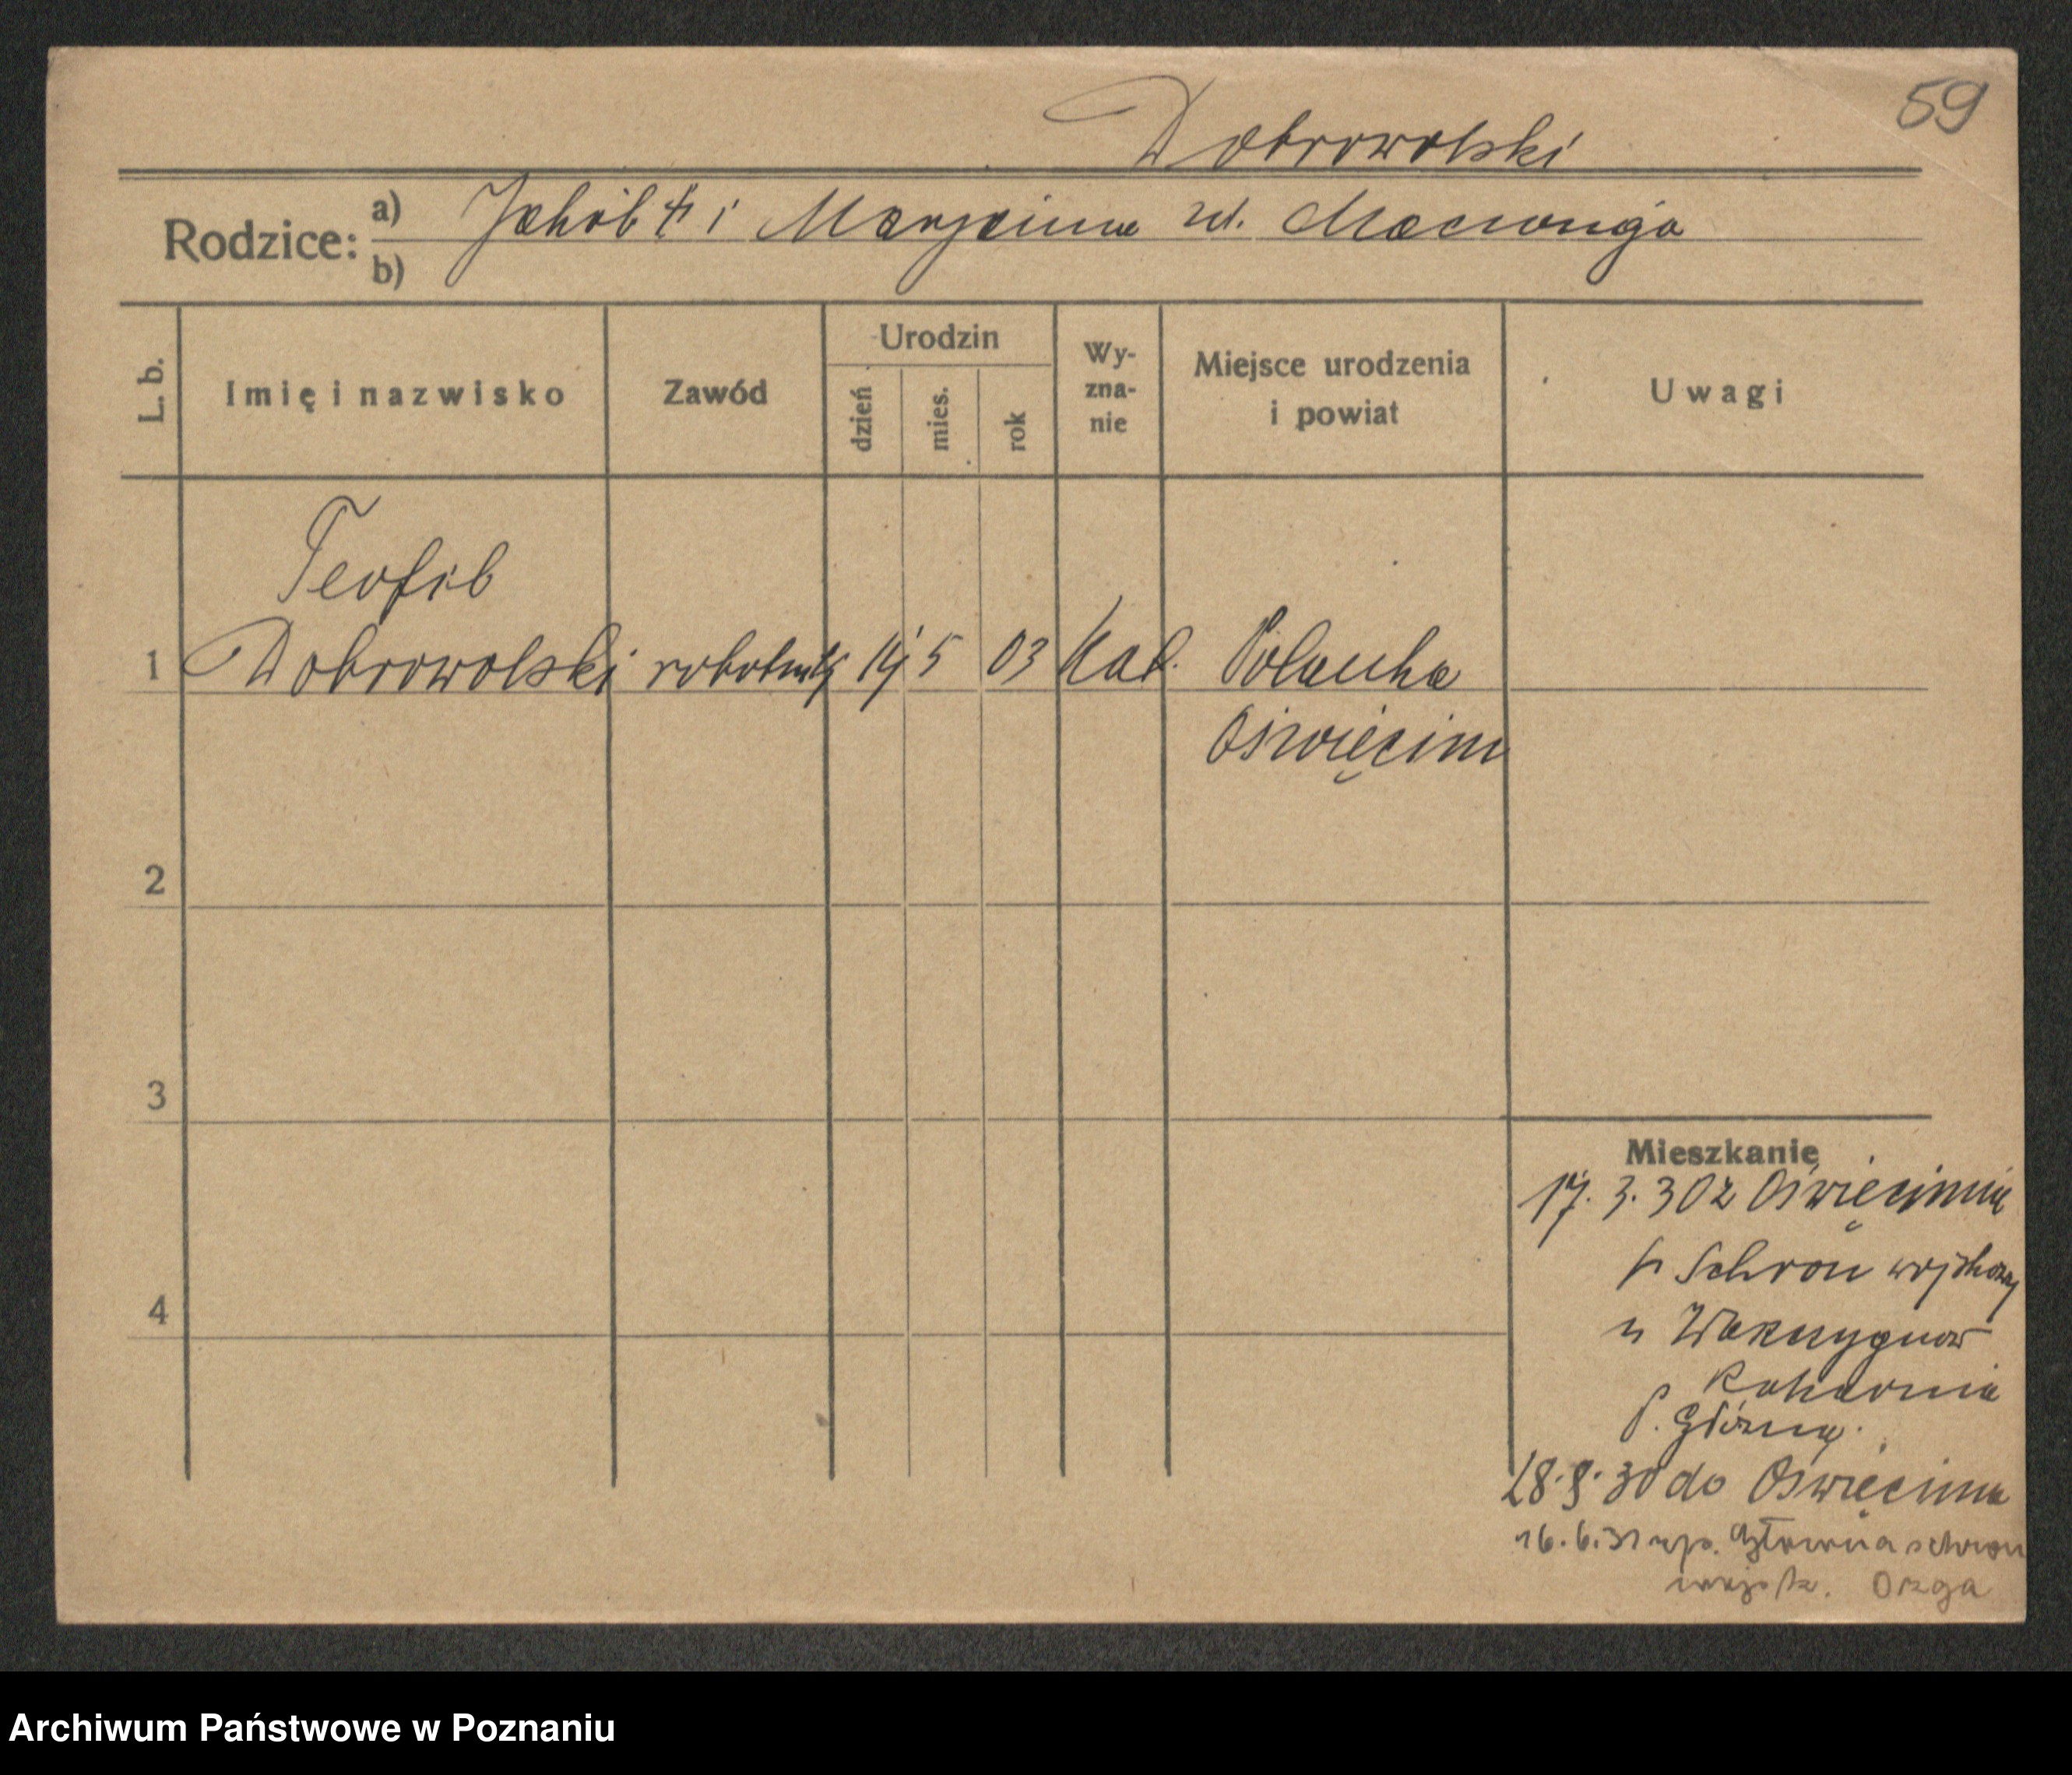 59
Dobrowolski
Rodzice: a) Jakób i Marjanna zd.
b)
L. b. Imię i nazwisko Zawód Urodzin dzień mies. rok Wy-zna-nie Miejsce urodzenia i powiat Uwagi
Teofil
1 Dobrowolski robotnik 14 5 03 Kat. Polanka
Oświęcim
2
3
4
Mieszkanie
17. 3. 30 z Oświęcimia
Schron
u
P. Główną.
28. 8. 30 do Oświęcima
16. 6. 31 Główna schron
wojsk.
Archiwum Państwowe w Poznaniu